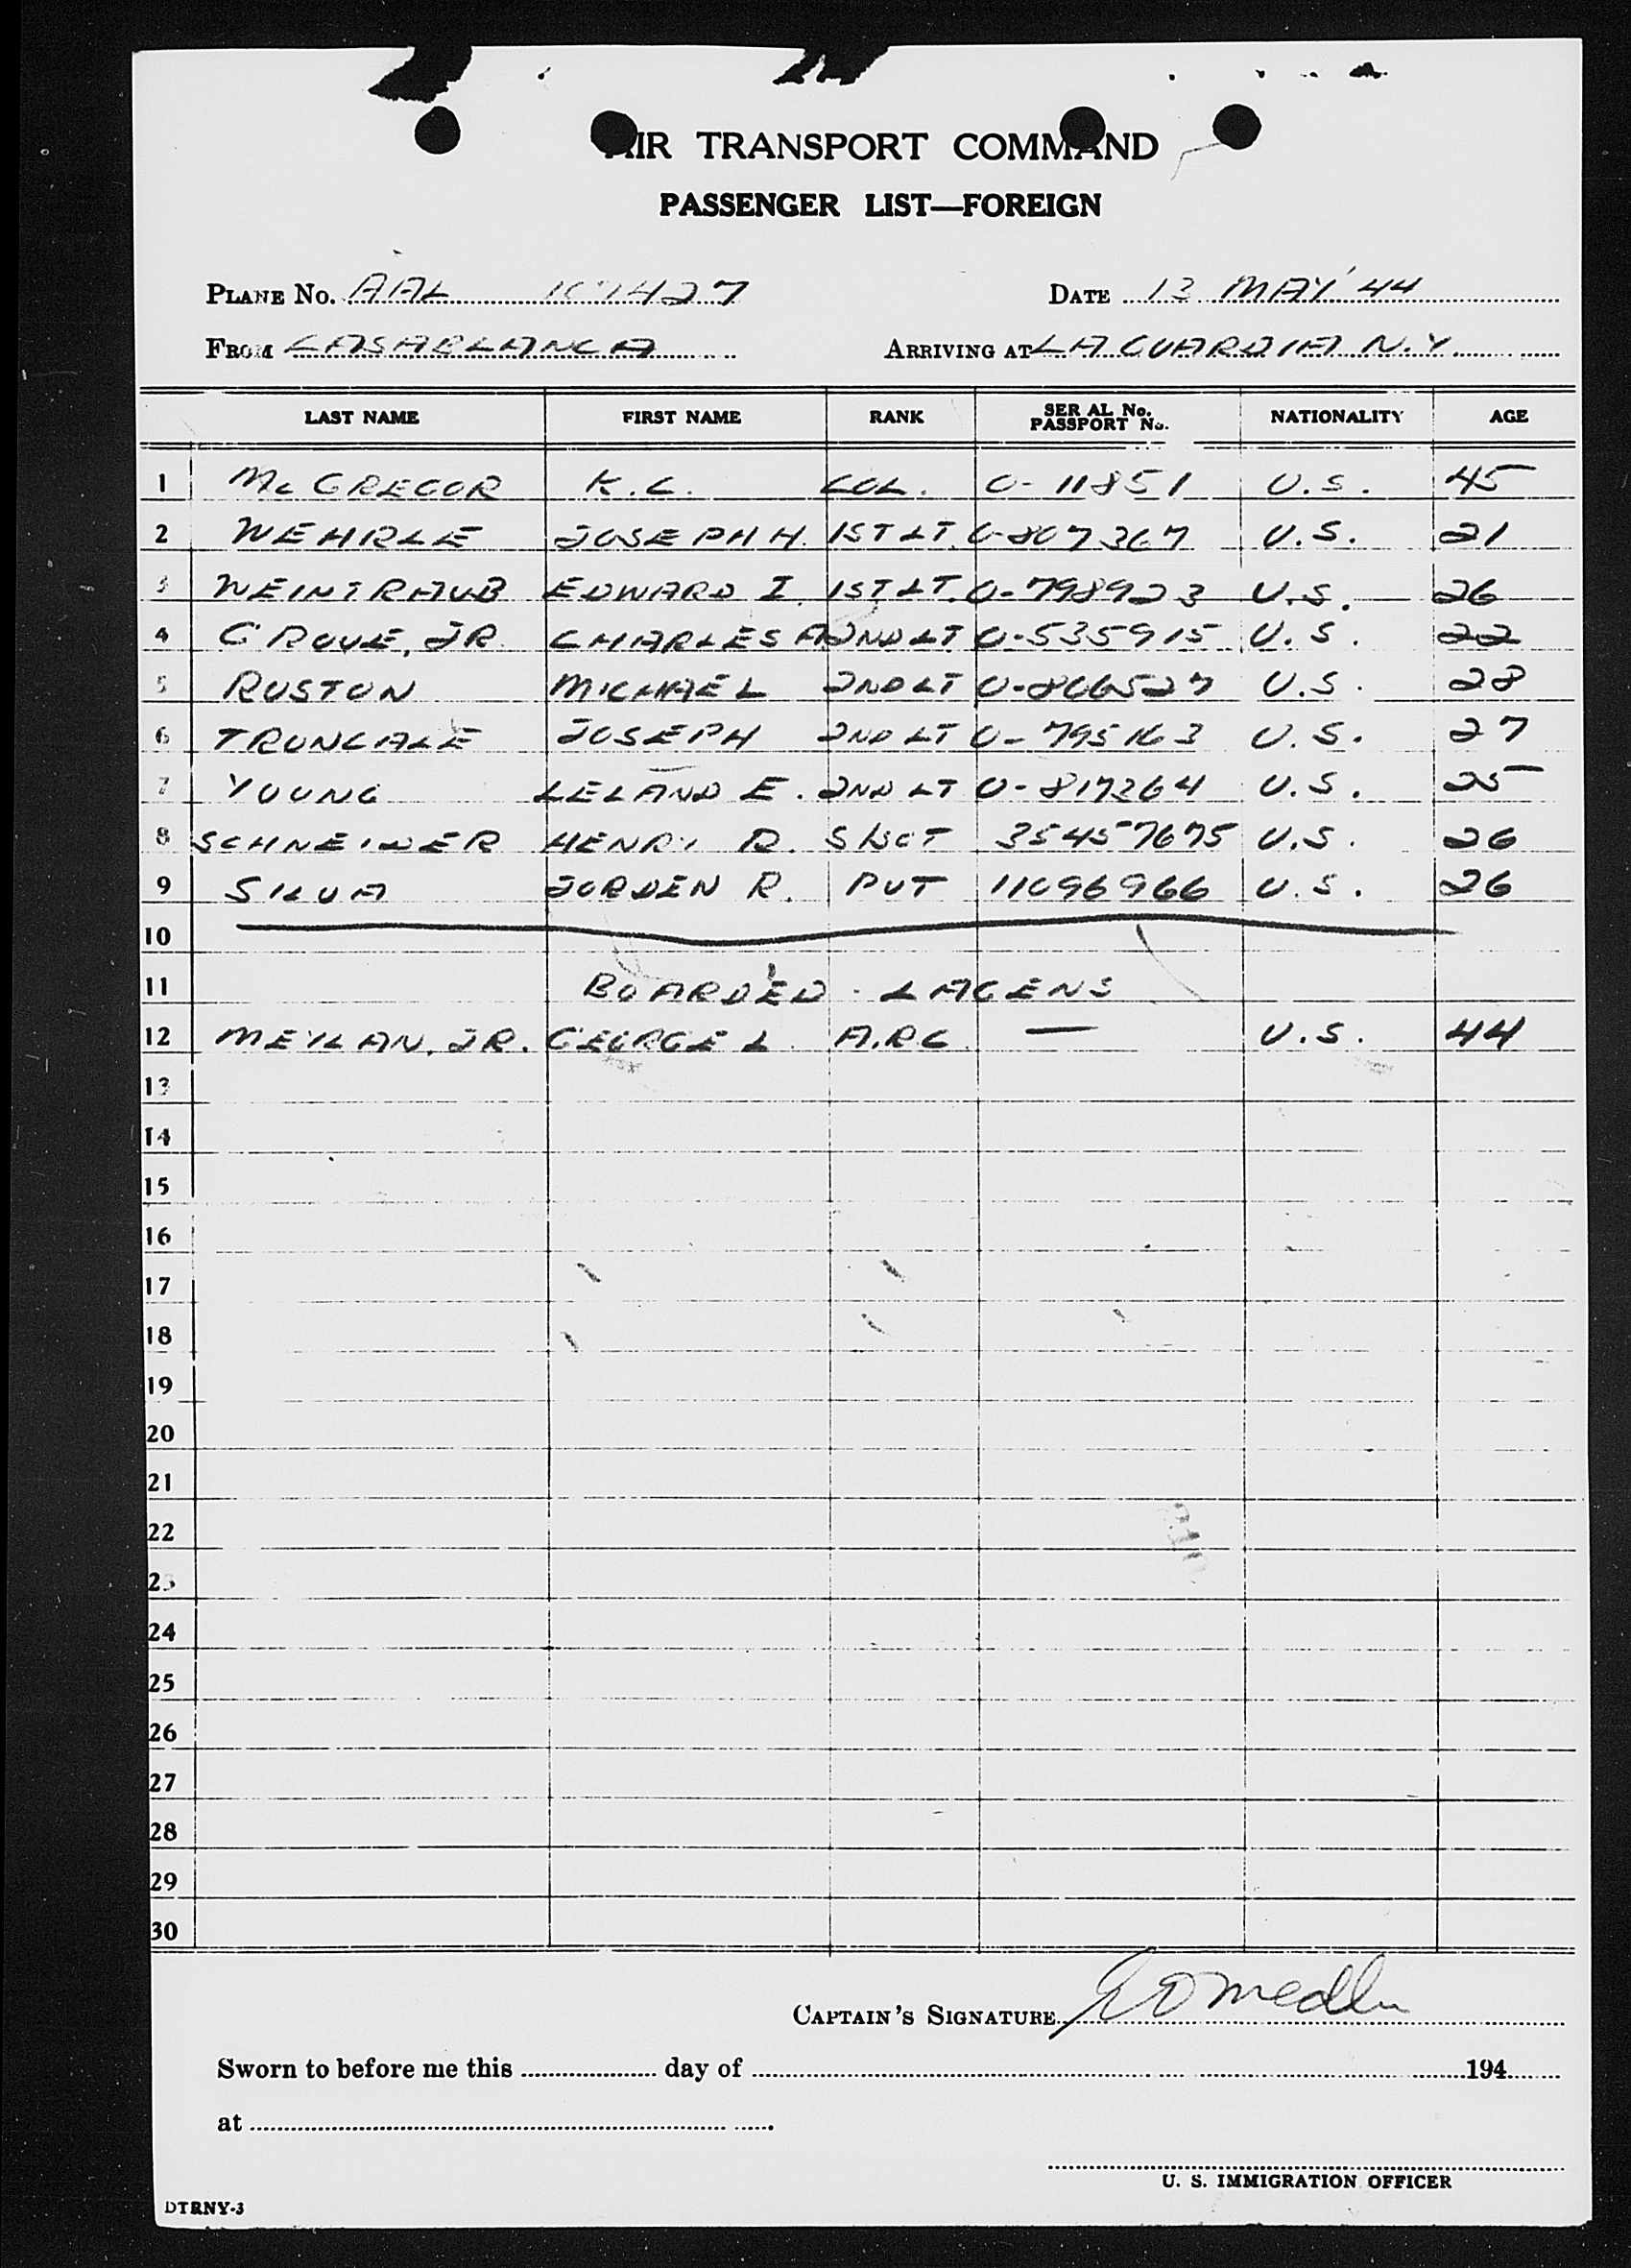 AIR TRANSPORT COMMAND
PASSENGER LIST—FOREIGN
PLANE No. AAL 107427 DATE 13 MAY '44
FROM CASABLANCA ARRIVING AT LA GUARDIA N.Y.
LAST NAME FIRST NAME RANK SERIAL No. PASSPORT No. NATIONALITY AGE
1 McGREGOR K.C. COL. O-11851 U.S. 45
2 WEHRLE JOSEPH H. 1ST LT. O-807367 U.S. 21
3 WEINTRAUB EDWARD I. 1ST LT. O-798923 U.S. 26
4 GROVE, JR. CHARLES A 2ND LT O-535915 U.S. 22
5 RUSTON MICHAEL 2ND LT O-806527 U.S. 28
6 TRUNCALE JOSEPH 2ND LT O-795163 U.S. 27
7 YOUNG LELAND E. 2ND LT O-817264 U.S. 25
8 SCHNEIDER HENRY R. S/SGT 35457675 U.S. 26
9 SILVA JORDEN R. PVT 11096966 U.S. 26
10
11 BOARDED - LAGENS
12 MEYLAN, JR. GEORGE L. A.R.C. — U.S. 44
13
14
15
16
17
18
19
20
21
22
23
24
25
26
27
28
29
30
CAPTAIN'S SIGNATURE
Sworn to before me this day of 194
at
U. S. IMMIGRATION OFFICER
DTRNY-3